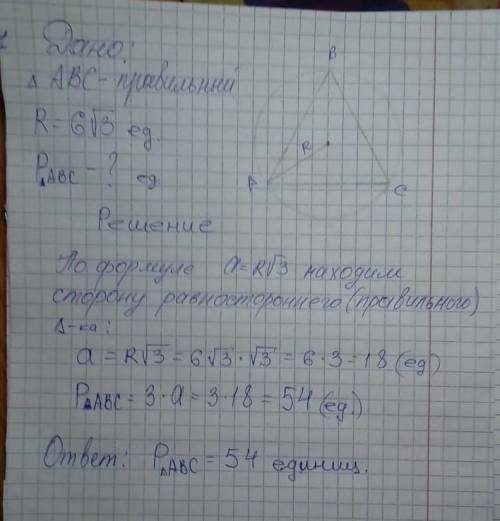 Дано:
B
Δ ABC - правильний
R = 6√3 ед.
R
P_ΔABC - ? ед
A
C
Решение
По формуле a = R√3 находим
сторону равностороннего (правильного)
Δ-ка:
a = R√3 = 6√3 · √3 = 6 · 3 = 18 (ед)
P_ΔABC = 3 · a = 3 · 18 = 54 (ед.)
Ответ: P_ΔABC = 54 единиц.